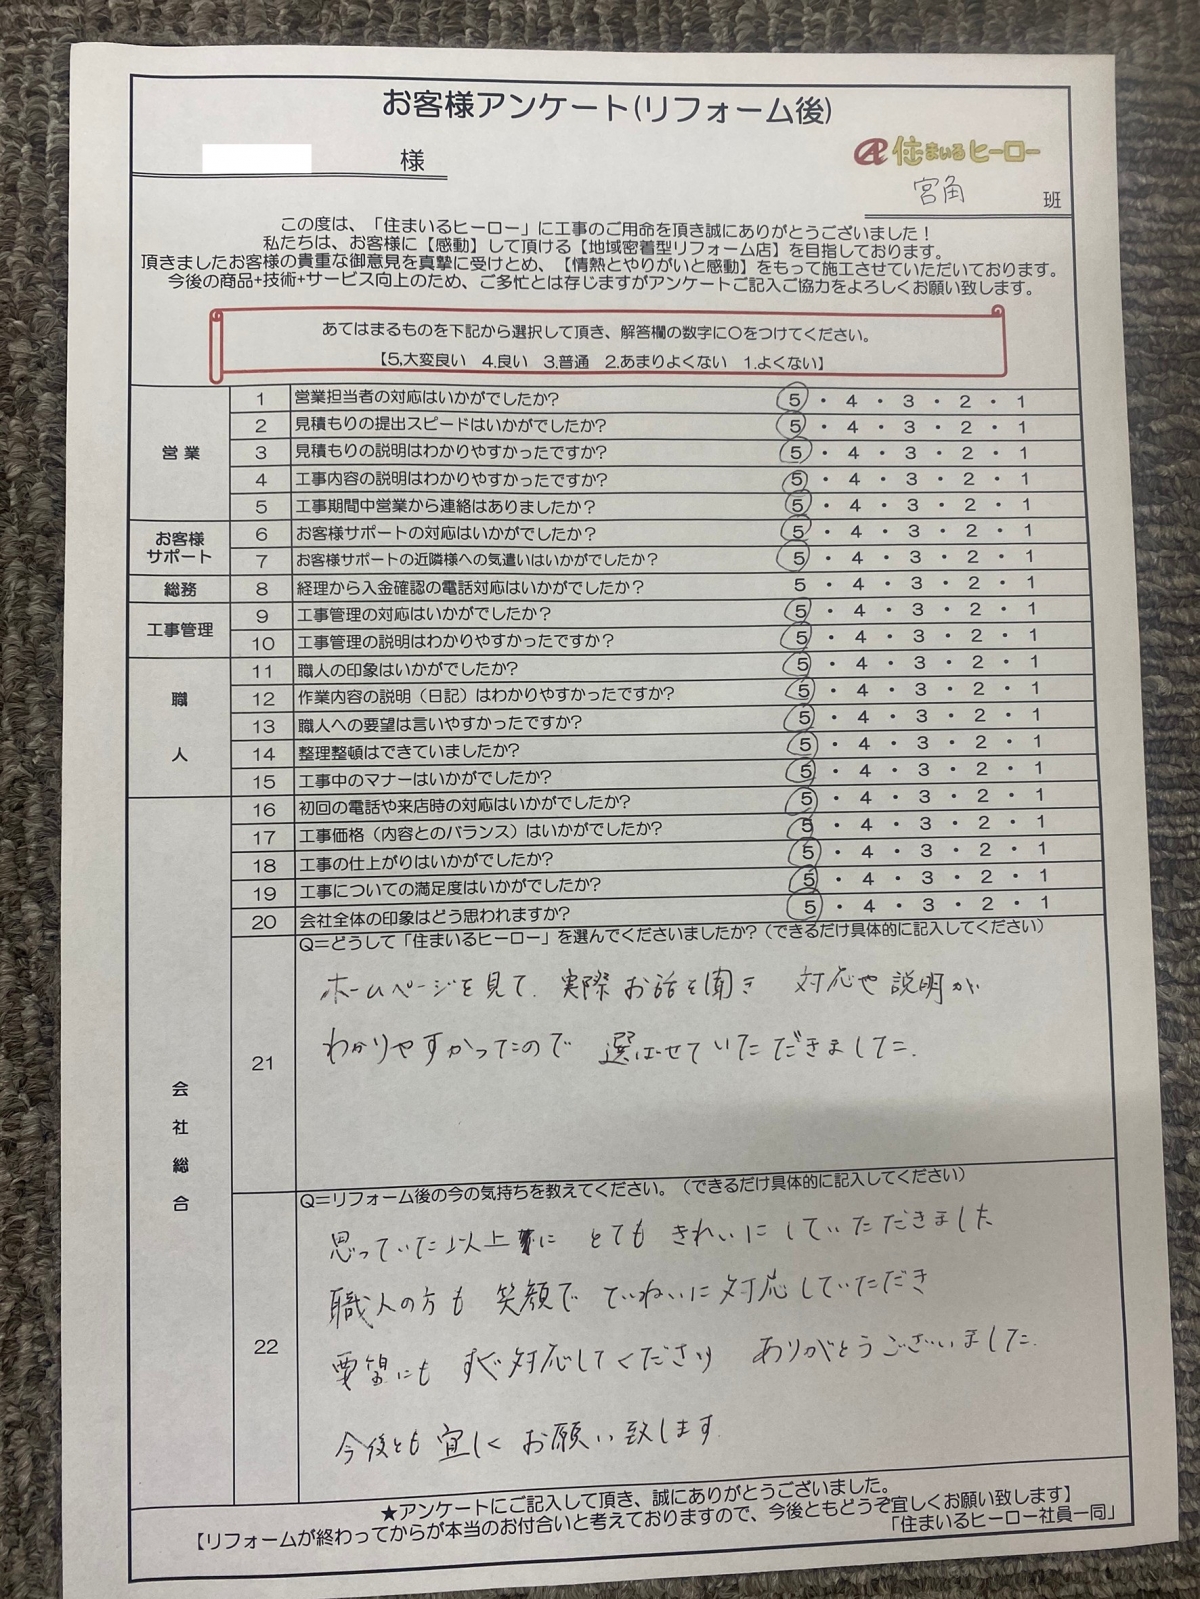 お客様アンケート(リフォーム後)
様
住まいるヒーロー
宮角 班
この度は、「住まいるヒーロー」に工事のご用命を頂き誠にありがとうございました!
私たちは、お客様に【感動】して頂ける【地域密着型リフォーム店】を目指しております。
頂きましたお客様の貴重な御意見を真摯に受けとめ、【情熱とやりがいと感動】をもって施工させていただいております。
今後の商品+技術+サービス向上のため、ご多忙とは存じますがアンケートご記入ご協力をよろしくお願い致します。
あてはまるものを下記から選択して頂き、解答欄の数字に〇をつけてください。
【5.大変良い 4.良い 3.普通 2.あまりよくない 1.よくない】
営業
1 営業担当者の対応はいかがでしたか? 5・4・3・2・1
2 見積もりの提出スピードはいかがでしたか? 5・4・3・2・1
3 見積もりの説明はわかりやすかったですか? 5・4・3・2・1
4 工事内容の説明はわかりやすかったですか? 5・4・3・2・1
5 工事期間中営業から連絡はありましたか? 5・4・3・2・1
お客様
サポート
6 お客様サポートの対応はいかがでしたか? 5・4・3・2・1
7 お客様サポートの近隣様への気遣いはいかがでしたか? 5・4・3・2・1
総務
8 経理から入金確認の電話対応はいかがでしたか? 5・4・3・2・1
工事管理
9 工事管理の対応はいかがでしたか? 5・4・3・2・1
10 工事管理の説明はわかりやすかったですか? 5・4・3・2・1
職人
11 職人の印象はいかがでしたか? 5・4・3・2・1
12 作業内容の説明(日記)はわかりやすかったですか? 5・4・3・2・1
13 職人への要望は言いやすかったですか? 5・4・3・2・1
14 整理整頓はできていましたか? 5・4・3・2・1
15 工事中のマナーはいかがでしたか? 5・4・3・2・1
会社総合
16 初回の電話や来店時の対応はいかがでしたか? 5・4・3・2・1
17 工事価格(内容とのバランス)はいかがでしたか? 5・4・3・2・1
18 工事の仕上がりはいかがでしたか? 5・4・3・2・1
19 工事についての満足度はいかがでしたか? 5・4・3・2・1
20 会社全体の印象はどう思われますか? 5・4・3・2・1
21
Q=どうして「住まいるヒーロー」を選んでくださいましたか?(できるだけ具体的に記入してください)
ホームページを見て、実際お話を聞き 対応や説明が
わかりやすかったので 選ばせていただきました。
22
Q=リフォーム後の今の気持ちを教えてください。(できるだけ具体的に記入してください)
思っていた以上に とても きれいにしていただきました
職人の方も 笑顔で ていねいに対応していただき
要望にも すぐ対応してくださり ありがとうございました。
今後とも 宜しく お願い致します
★アンケートにご記入して頂き、誠にありがとうございました。
【リフォームが終わってからが本当のお付合いと考えておりますので、今後ともどうぞ宜しくお願い致します】
「住まいるヒーロー社員一同」